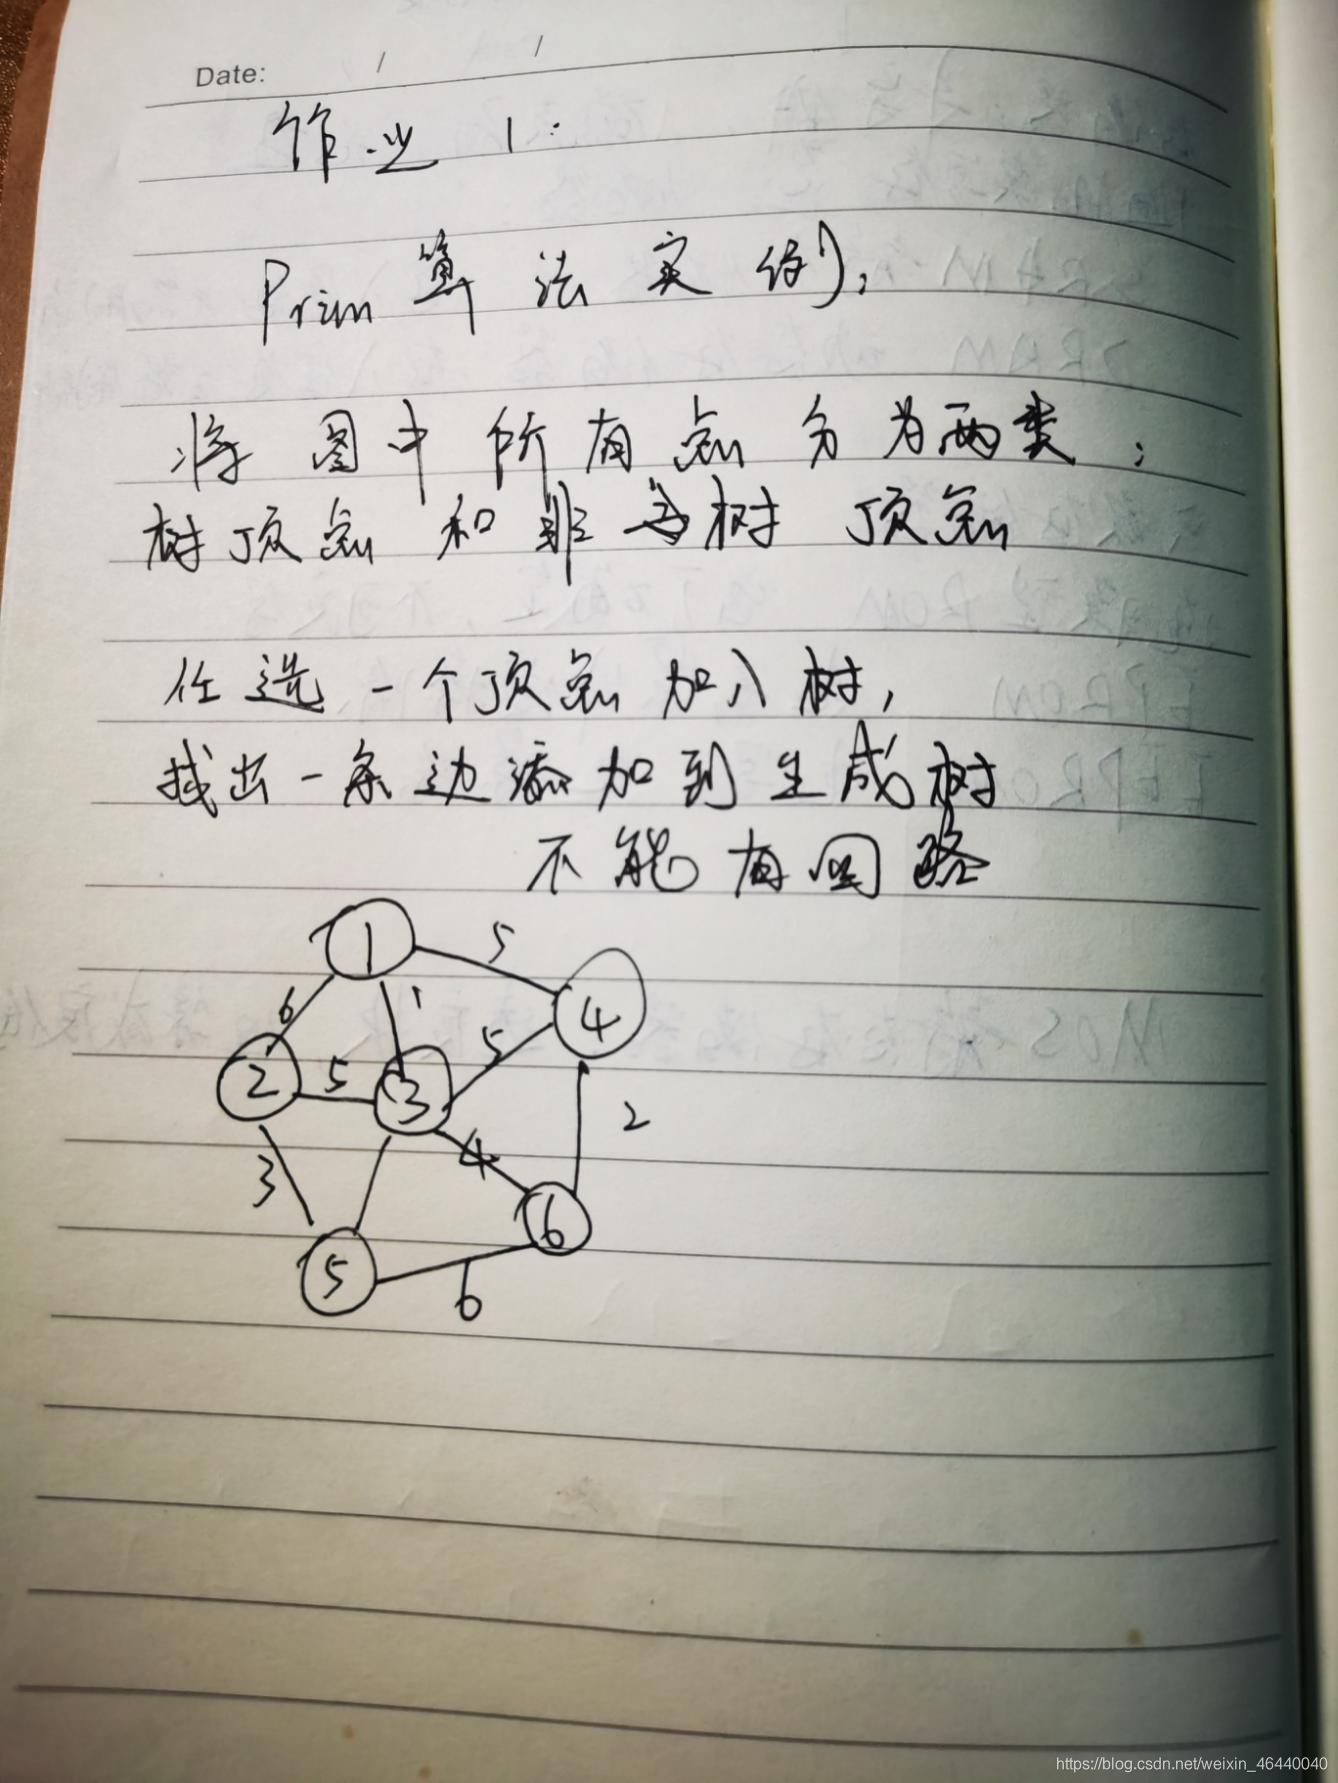 Date: / /
作业 1:
Prim 算法实例,
将图中所有点分为两类;
树顶点和非树顶点
任选一个顶点加入树,
找出一条边添加到生成树
不能有回路
1 5 4
6 1
2 5 3 5
2
3 4
6
5
6
https://blog.csdn.net/weixin_46440040